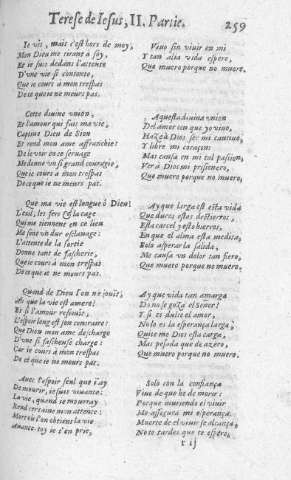 Terese de Iesus, II. Partie. 259
Ie vis, mais c'est hors de moy,
Mon Dieu me tirant à soy,
Et ie suis dedans l'attente
D'vne vie si contente,
Que ie cours à mon trespas
De ce que ie ne meurs pas.
Cette diuine vnion,
Et l'amour qui fait ma vie,
Captiue Dieu de Sion
Et rend mon ame affranchie:
De le voir en ce seruage
Me donne vn si grand courage,
Que ie cours à mon trespas
De ce que ie ne meurs pas.
Que ma vie est longue ô Dieu!
L'exil, les fers & la cage
Qui me tiennent en ce lieu
Me font vn dur esclauage:
L'attente de la sortie
Donne tant de fascherie,
Que ie cours à mon trespas
De ce que ie ne meurs pas.
Quand de Dieu l'on ne jouit,
Ah que la vie est amere!
Et si l'amour resiouit,
L'espoir long est son contraire:
Que Dieu mon ame descharge
D'vne si fascheuse charge!
Car ie cours à mon trespas
De ce que ie ne meurs pas.
Auec l'espoir seul que i'ay
De mourir, ie suis viuante:
La vie, quand ie mourray
Rend certaine mon attente:
Mort où l'on obtient la vie
Auance-toy ie t'en prie,
Viuo sin viuir en mi
Y tan alta vida espero,
Que muero porque no muero.
Aquesta diuina vnion
Del amor con que yo viuo,
Haze à Dios ser mi cautiuo,
Y libre mi coraçon:
Mas causa en mi tal passion,
Ver à Dios mi prisionero,
Que muero porque no muero.
Ay que larga es esta vida
Que duros estos destierros,
Esta carcel y estos hierros,
En que el alma està metida,
Solo esperar la salida,
Me causa vn dolor tan fiero,
Que muero porque no muero.
Ay que vida tan amarga
Do no se goza el Señor!
Y si es dulce el amor,
No lo es la esperança larga,
Quite me Dios esta carga,
Mas pesada que de azero,
Que muero porque no muero.
Solo con la confiança
Viuo de que he de morir:
Porque muriendo el viuir
Me assegura mi esperança.
Muerte do el viuir se alcança,
No te tardes que te espero,
r ij